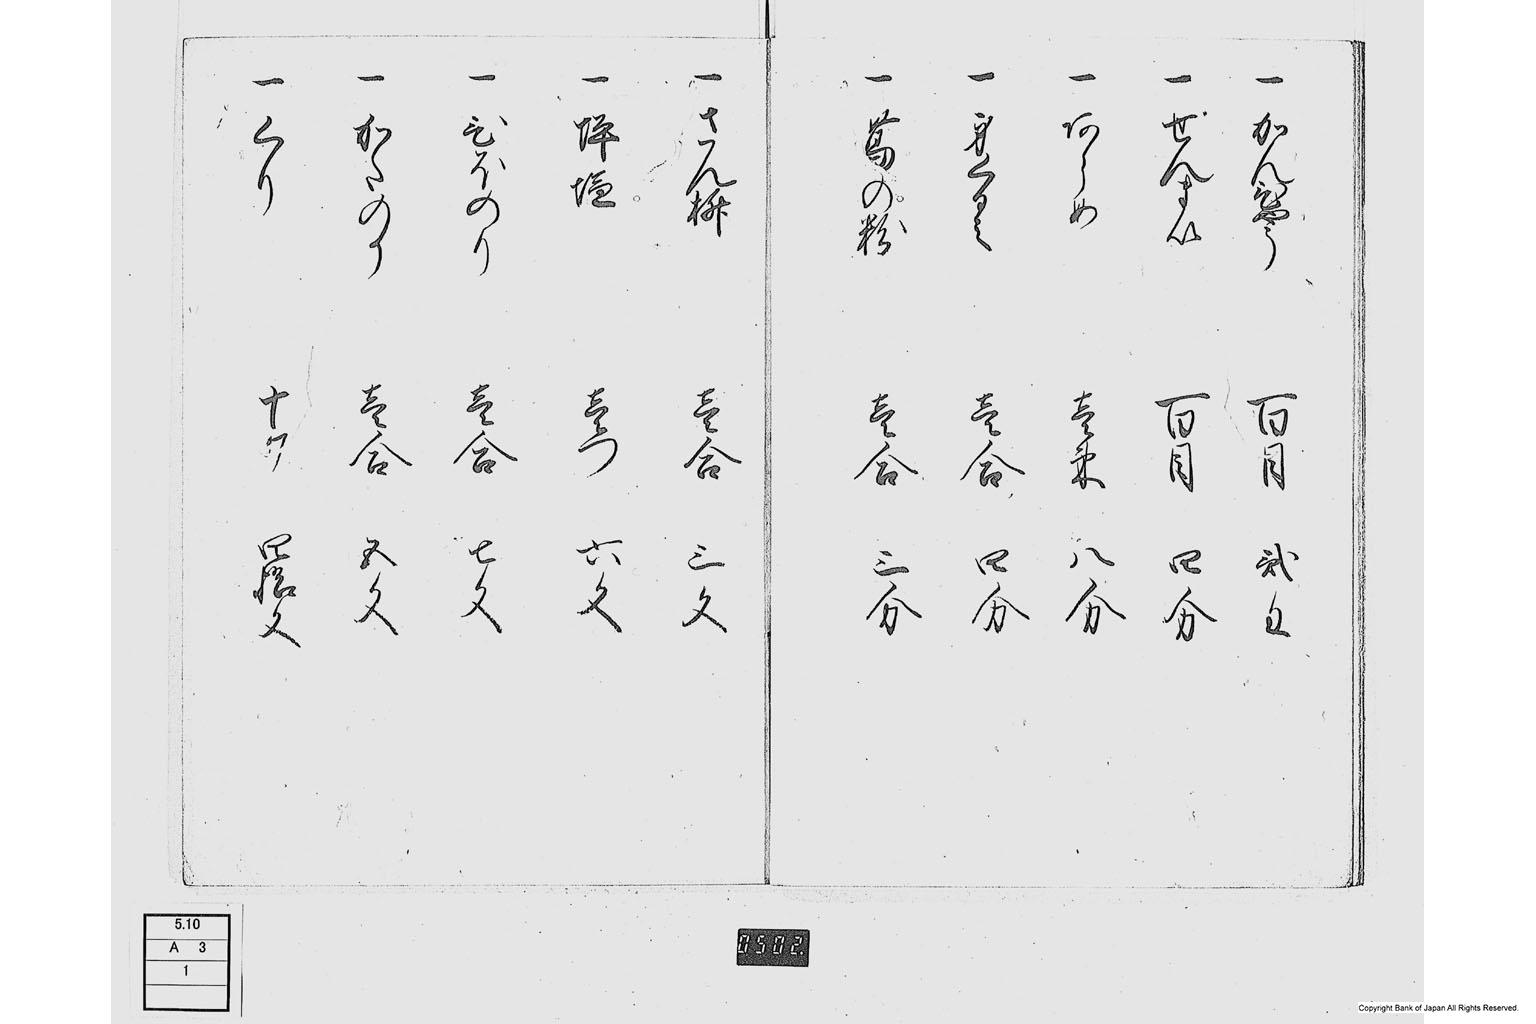 一かんひやう 百目 弐匁
一ぜんまい 百目 四分
一あらめ 壱束 八分
一身くるミ 壱合 四分
一葛の粉 壱合 三分
一さん椒 壱合 三文
一坪塩 壱つ 六文
一ひほのり 壱合 七文
一かたのり 壱合 五文
一くり 十タ 四拾文
5.10
A 3
1
0502
Copyright Bank of Japan All Rights Reserved.